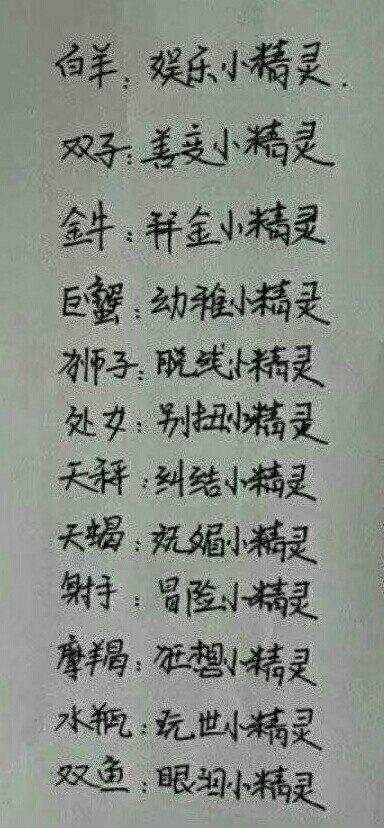 白羊：娱乐小精灵.
双子：善变小精灵
金牛：拜金小精灵
巨蟹：幼稚小精灵
狮子：脱线小精灵
处女：别扭小精灵
天秤：纠结小精灵
天蝎：妩媚小精灵
射手：冒险小精灵
摩羯：狂想小精灵
水瓶：玩世小精灵
双鱼：眼泪小精灵